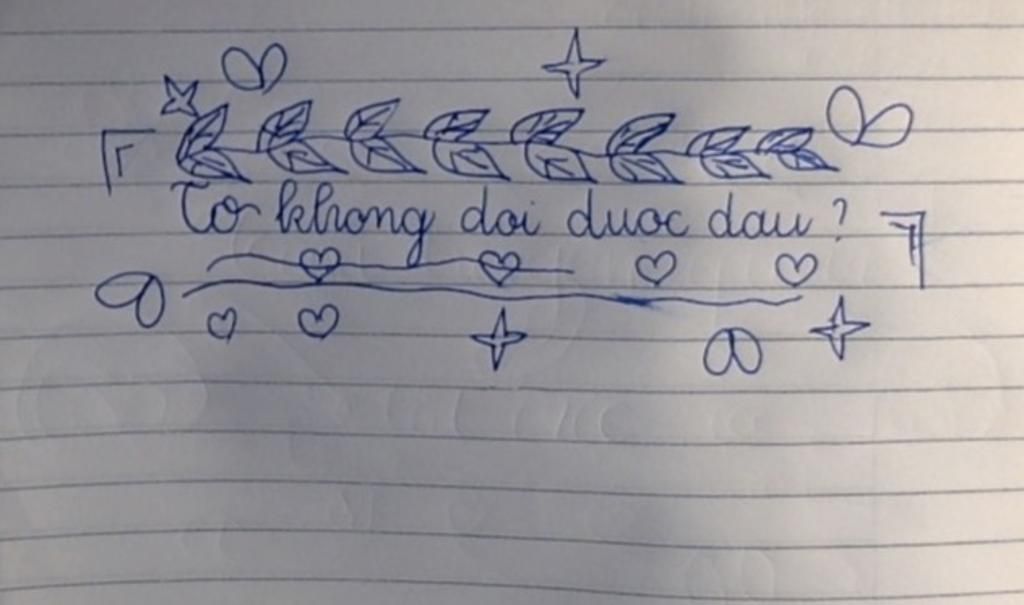 To khong doi duoc dau ?